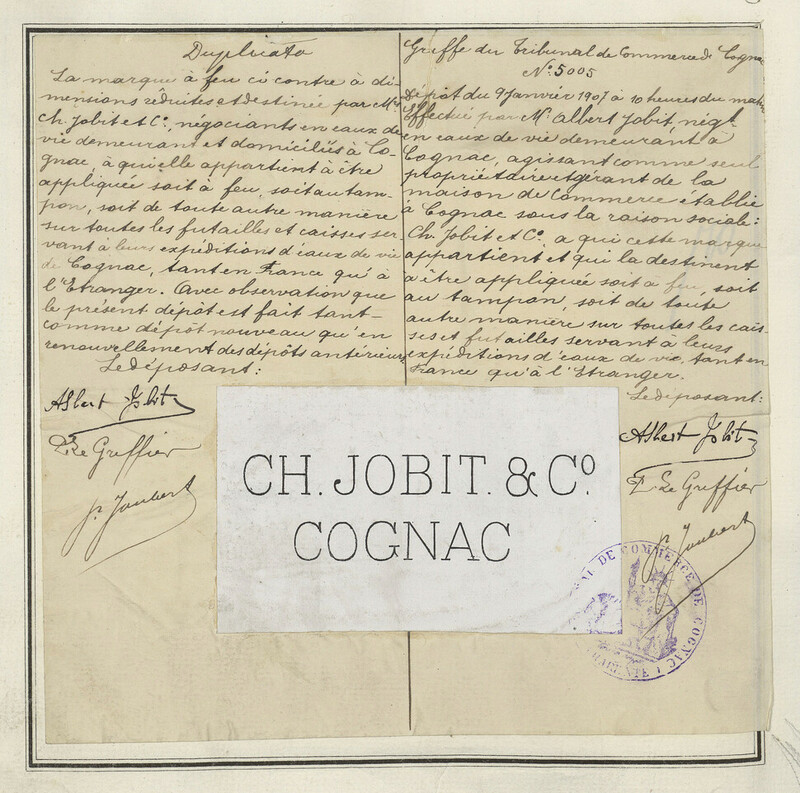 Duplicata
La marque à feu ci contre à di-
mensions réduites et destinée par Mrs
Ch. Jobit et Co, négociants en eaux de
vie demeurant et domiciliés à Co-
gnac, à qu'elle appartient à être
appliquée soit à feu, soit au tam-
pon, soit de toute autre manière
sur toutes les futailles et caisses ser-
vant à leurs expéditions d'eaux de vie
de Cognac, tant en France qu'à
l'Etranger. Avec observation que
le présent dépôt est fait tant
comme dépôt nouveau qu'en
renouvellement des dépôts antérieurs
Le déposant:
Albert Jobit
P. Le Greffier
p. Joubert
Greffe du Tribunal de Commerce de Cognac
No. 5005
Dépôt du 9 Janvier 1907 à 10 heures du matin
Effectué par M. Albert Jobit, négt.
en eaux de vie demeurant à
Cognac, agissant comme seul
propriétaire et gérant de la
maison de Commerce établie
à Cognac sous la raison sociale:
Ch. Jobit et Co. a qui cette marque
appartient et qui la destinent
à être appliquée soit à feu, soit
au tampon, soit de toute
autre manière sur toutes les cais-
ses et futailles servant à leurs
expéditions d'eaux de vie, tant en
France qu'à l'Etranger.
Le déposant:
Albert Jobit
P. Le Greffier
p. Joubert
CH. JOBIT. & Co.
COGNAC
DE COMMERCE DE COGNAC